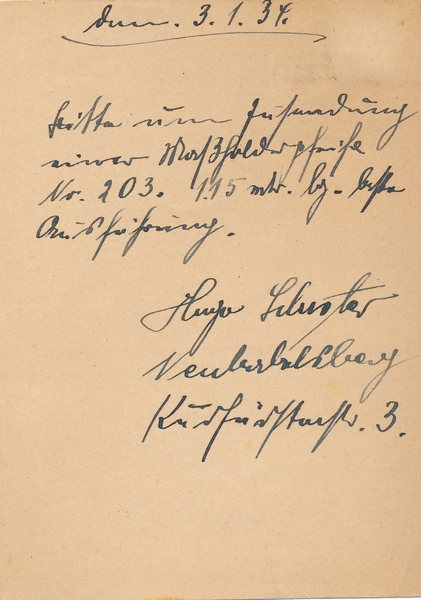 den. 3.1.34.
Bitte um Zusendung
einer Maßholderpfeife
No. 203. 115 mtr. lg. beste
Ausführung.
Hugo Schuster
Neubabelsberg
Kurfürstenstr. 3.